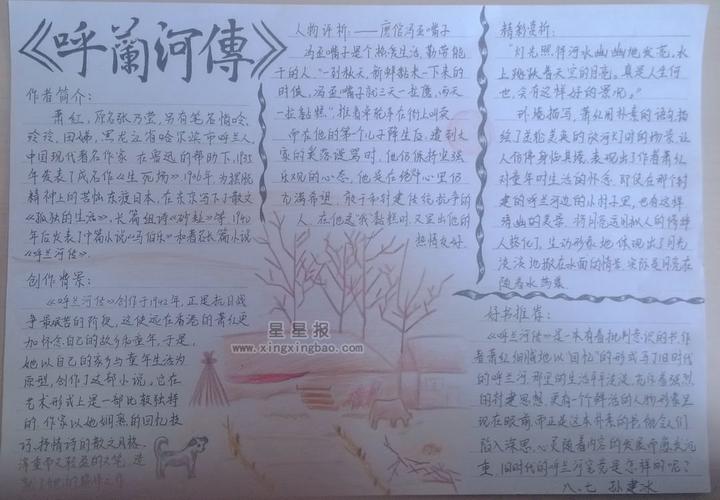 《呼蘭河傳》
作者简介：
萧红，原名张乃莹，另有笔名悄吟、
玲玲、田娣，黑龙江省哈尔滨市呼兰人，
中国现代著名作家。在鲁迅的帮助下，
年发表了成名作《生死场》。1936年，为摆脱
精神上的苦恼东渡日本，在东京写下了散文
《孤独的生活》，长篇组诗《砂粒》等。1940
年后发表了中篇小说《马伯乐》和著名长篇小说
《呼兰河传》。
创作背景：
《呼兰河传》创作于1942年，正是抗日战
争最艰苦的阶段，这使远在香港的萧红更
加怀念自己的故乡和童年。于是，
她以自己的家乡与童年生活为
原型，创作了这部小说。它在
艺术形式上是一部比较独特
的。作家以她娴熟的回忆技
巧、抒情诗的散文风格、
浑重而又轻盈的文笔，造
就了她的巅峰之作
人物评析：——磨倌冯歪嘴子
冯歪嘴子是个热爱生活，勤劳能
干的人。“一到秋天，新鲜黏米一下来的
时候，冯歪嘴子就三天一拉磨，两天
一拉黏糕”，推着单轮车在街上叫卖
而在他的第一个儿子降生后，遭到大
家的笑落谩骂时，他仍保持坚强
乐观的心态，他是在绝望心里仍
充满希望，敢于和封建传统抗争的
人。在他送“我”黏糕时，又显出他的
热情友好。
精彩赏析：
“灯光照得河水幽幽地发亮。水
上跳跃着天空的月亮。真是人生何
世，会有这样好的景况。”
环境描写，萧红用朴素的语句描
绘了美轮美奂的放河灯时的场景，让
人仿佛身临其境，表现出了作者萧红
对童年时生活的怀念。即使在那个封
建的呼兰河边的小村子里，也有这样
绮丽的美景。将月亮运用拟人的修辞
人格化了，生动形象地体现出了月光
淡淡地撒在水面的情景，实际是月亮在
随着水荡漾。
好书推荐：
《呼兰河传》是一本有着批判意识的书，作
者萧红细腻地以“回忆”的形式写了旧时代
的呼兰河，那里的生活平平淡淡，充斥着强烈
的封建思想，更有一个个鲜活的人物形象呈
现在眼前，而正是这本朴素的书，能令人们
陷入深思，心灵随着内容的发展而愈发沉
重，旧时代的呼兰河究竟是怎样的呢？
八、七 孙建冰
星星报
www.xingxingbao.com